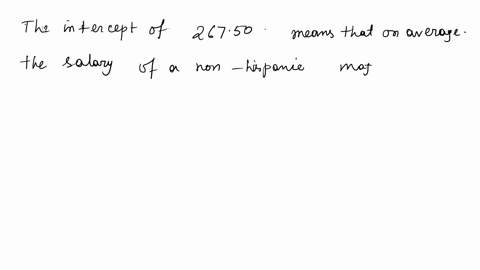 The intercept of 267.50. means that on average.
the salary of a non-hispanic